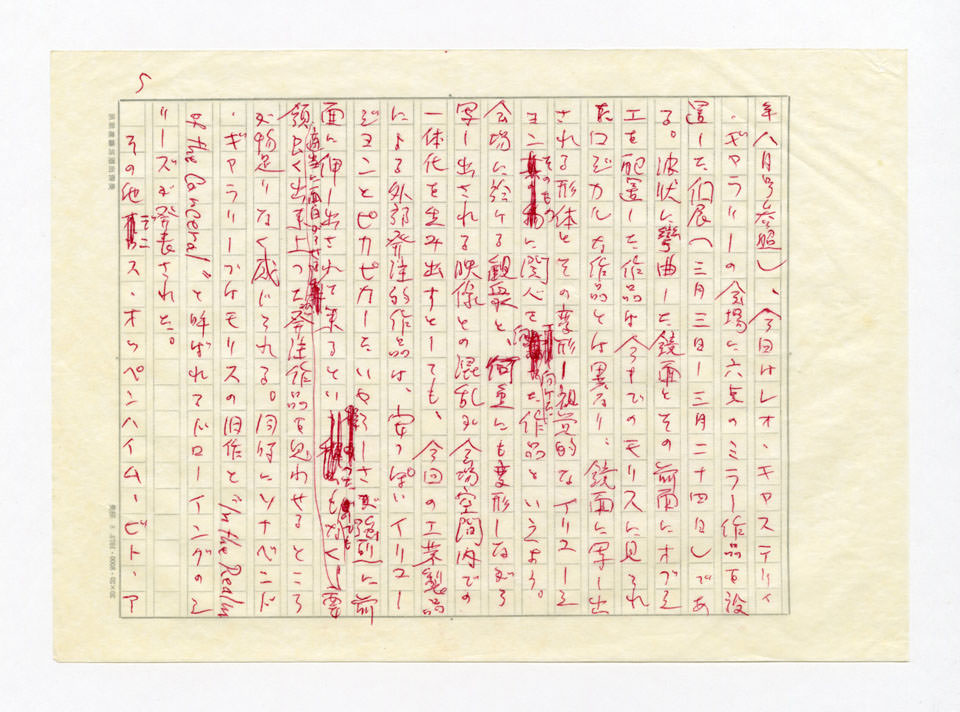 5
年八月号参照し、今回はレオ・キャステリィ
・ギャラリーの会場に六点のミラー作品を設
置した個展(三月三日―三月二十四日)であ
る。波状に彎曲した鏡面とその前面にオブジ
ェを配置した作品は今までのモリスに見られ
たロジカルな作品とは異なり、鏡面に写し出
される形体とその変形し視覚的なイリュージ
ョンそのものに関心を向けた作品といえよう。
会場に於ける観衆と、何重にも変形しながら
写し出される映像との混乱が会場空間内での
一体化を生み出すとしても、今回の工業製品
による外部発注的作品は、安っぽいイリュー
ジョンとピカピカしたいやらしさが強烈に前
面に押し出されて来るとい もなく、要
領良く出来上った発注作品を思わせるところ
が物足りなく感じられる。同時にソナベンド
・ギャラリーではモリスの旧作と“In the Realm
of the Carceral”と呼ばれてドローイングのシ
リーズが発表された。
その他 ス・オッペンハイム・ビト・ア